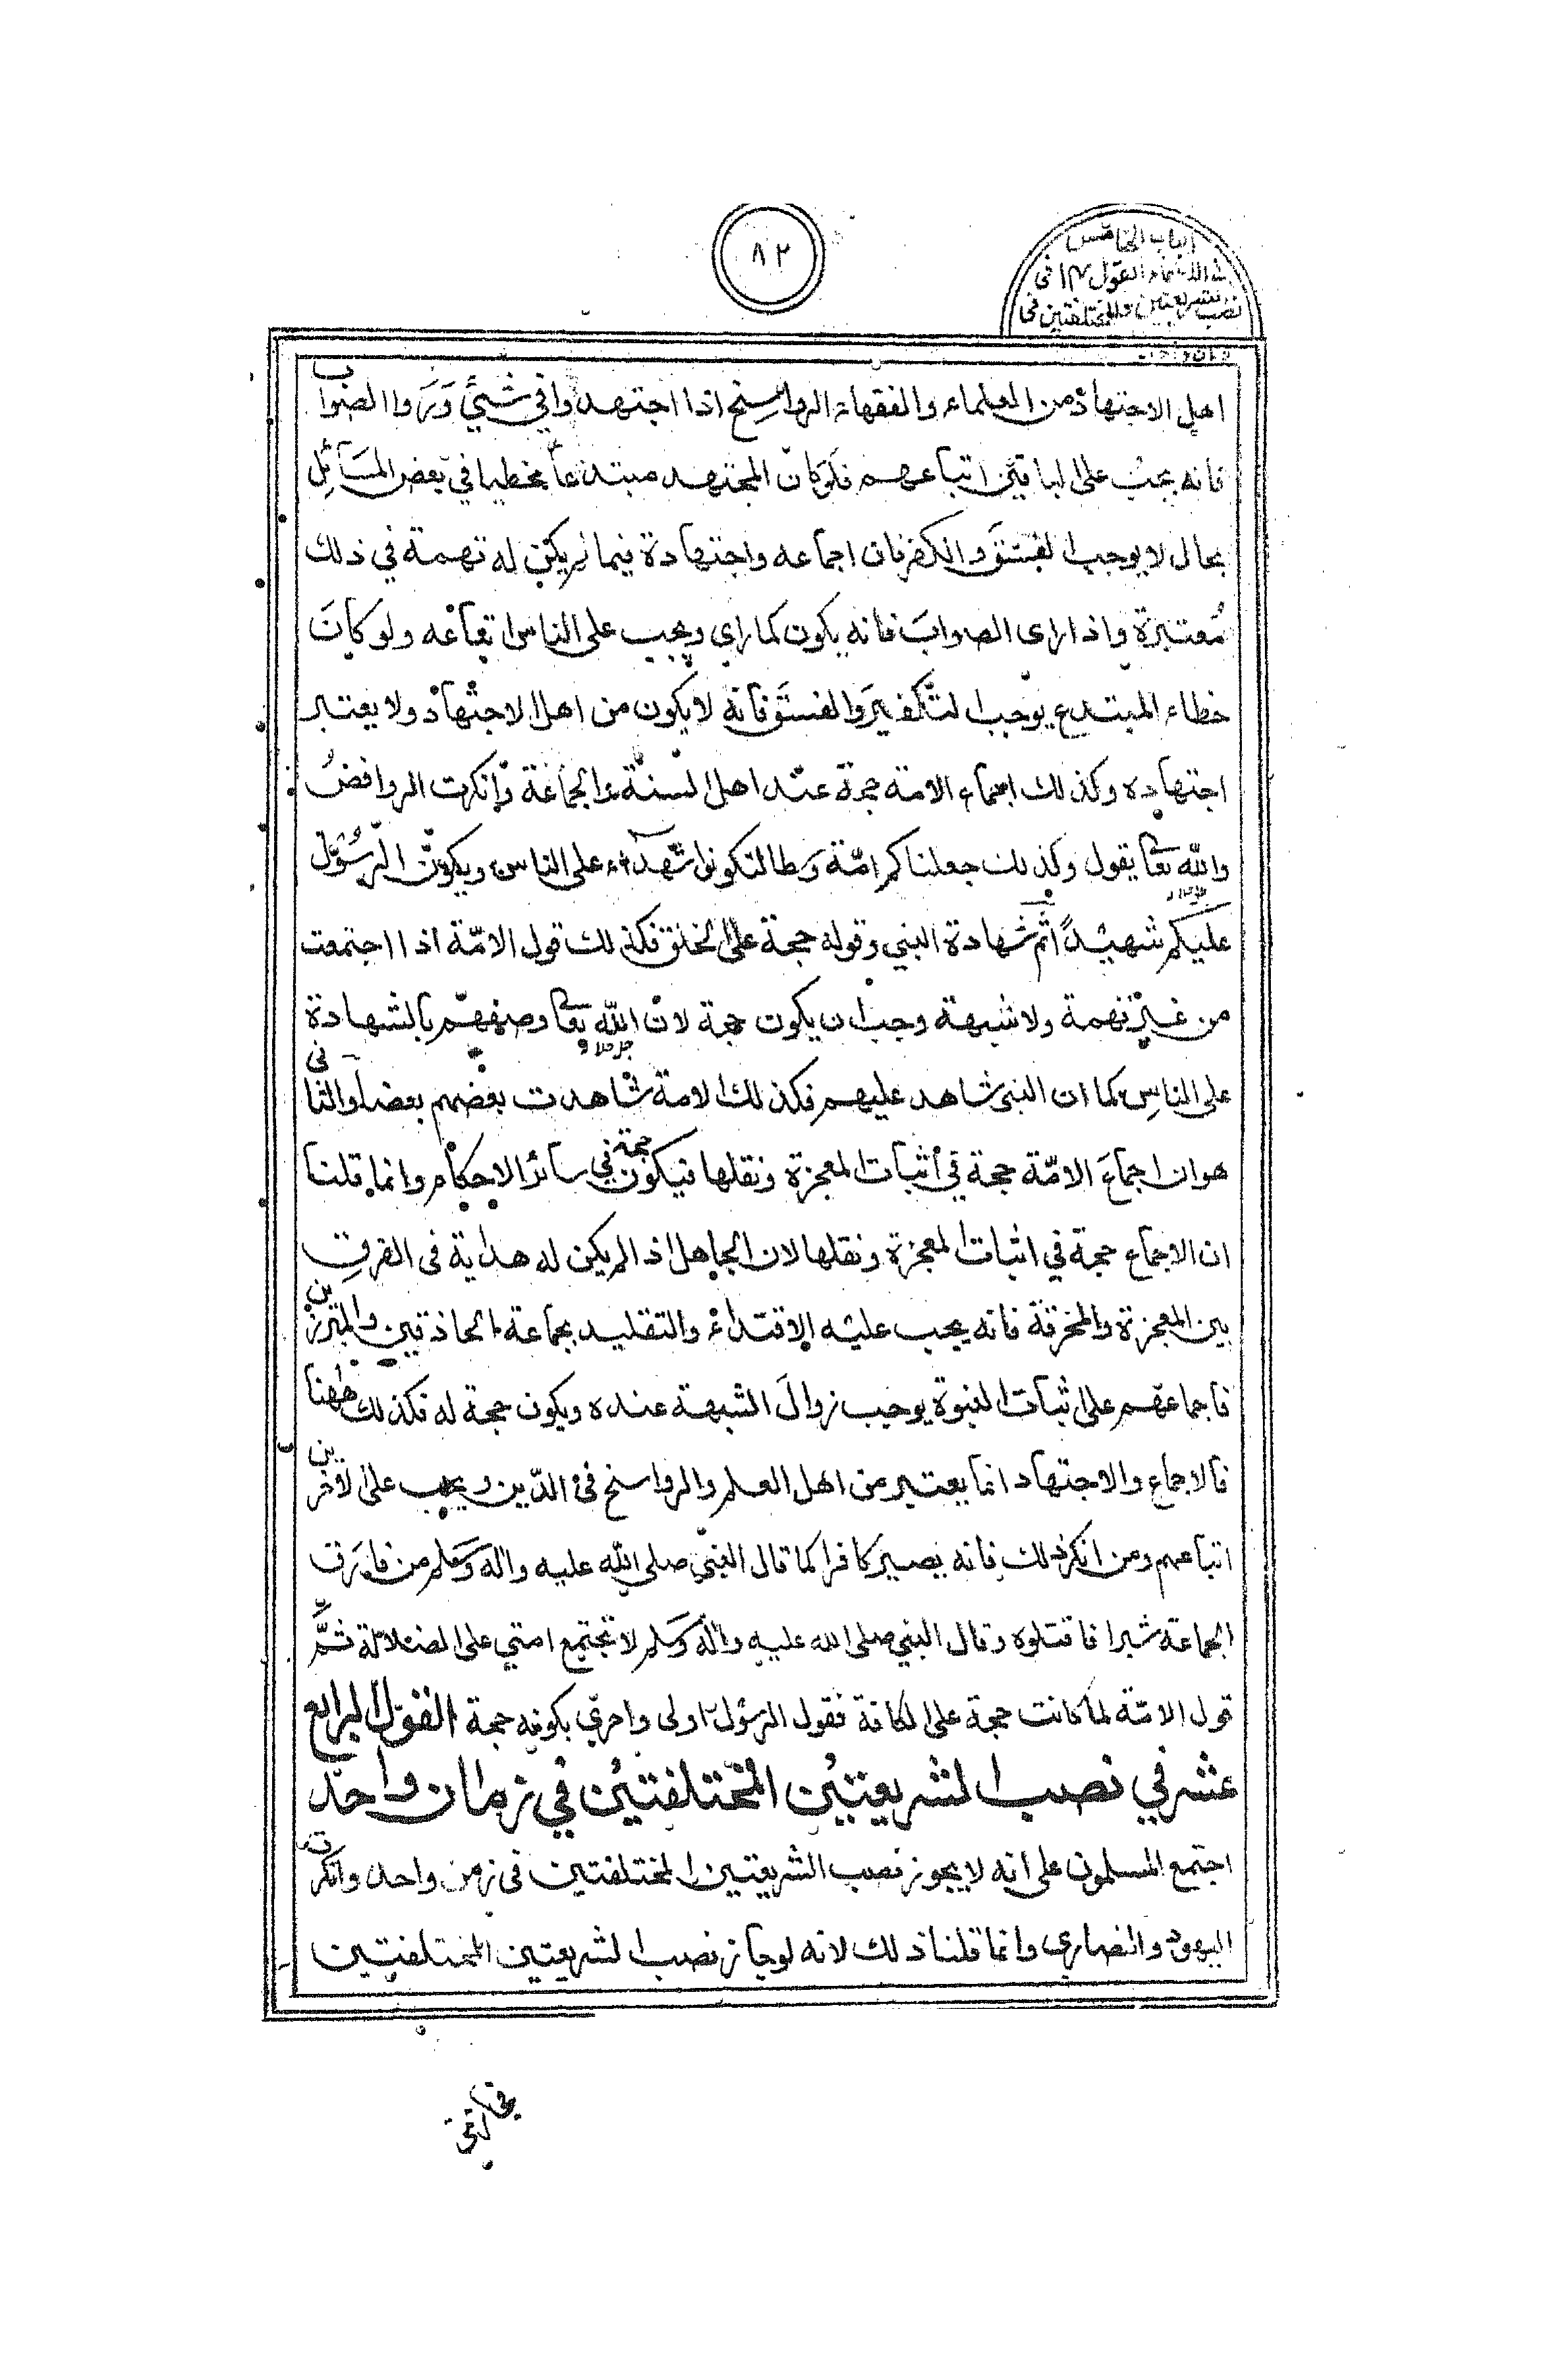 ٨٢
الباب الخامس
القول ١٤ في
نصب شريعتين والمختلفتين في
زمان واحد
اهل الاجتهاد من العلماء والفقهاء الرواسخ اذا اجتهدوا في شئ ورروا الصواب
فانه يجب على الباقين اتباعهم فلو كان المجتهد مبتدعا مخطيا في بعض المسائل
بحال لا يوجب الفسق والكفر فان اجماعه واجتهاده فيما لم يكن له تهمة في ذلك
معتبرة واذا رای الصواب فانه يكون كما رای ويجب على الناس اتباعه ولو كان
خطاء المبتدع يوجب التكفير والفسق فانه لا يكون من اهل الاجتهاد ولا يعتبر
اجتهاده وكذلك اجماع الامة حجة عند اهل السنة والجماعة وانكرت الروافض
والله تعا يقول وكذلك جعلناكم امّة وسطا لتكونوا شهداء على الناس ويكون الرسول
عليكم شهيدًا ثم شهادة النبي وقوله حجة على الخلق فكذلك قول الامّة اذا اجتمعت
من غير تهمة ولا شبهة وجب ان يكون حجة لان الله تعا وصفهم بالشهادة
على الناس كما ان النبی شاهد عليهم فكذلك الامة شاهدت بعضهم بعضا والثانی
هو ان اجماع الامّة حجة في اثبات المعجزة ونقلها فيكون حجة في سائر الاحكام وانما قلنا
ان الاجماع حجة في اثبات المعجزة ونقلها لان الجاهل اذ الم يكن له هداية فی الفرق
بين المعجزة والمخرقة فانه يجب عليه الاقتداء والتقليد بجماعة الحاذقين والمبرزين
فاجماعهم على اثبات النبوة يوجب زوال الشبهة عنده ويكون حجة له فكذلك ههنا
فالاجماع والاجتهاد انما يعتبر من اهل العلم والرواسخ فی الدّين ويجب على الاخرين
اتباعهم ومن انكر ذلك فانه يصير كافرا كما قال النبي صلى الله عليه واله وسلم من فارق
الجماعة شبرا فاقتلوه وقال النبي صلى الله عليه واله وسلم لا تجتمع امتي على الضلالة ثمّ
قول الامّة لما كانت حجة على الكافة فقول الرسول اولى واحری بكونه حجة القول الرابع
عشر في نصب الشريعتين المختلفتين في زمان واحد
اجتمع المسلمون على انه لا يجوز نصب الشريعتين المختلفتين فی زمن واحد وانكرت
اليهود والنصاری وانما قلنا ذلك لانه لو جاز نصب الشريعتين المختلفتين